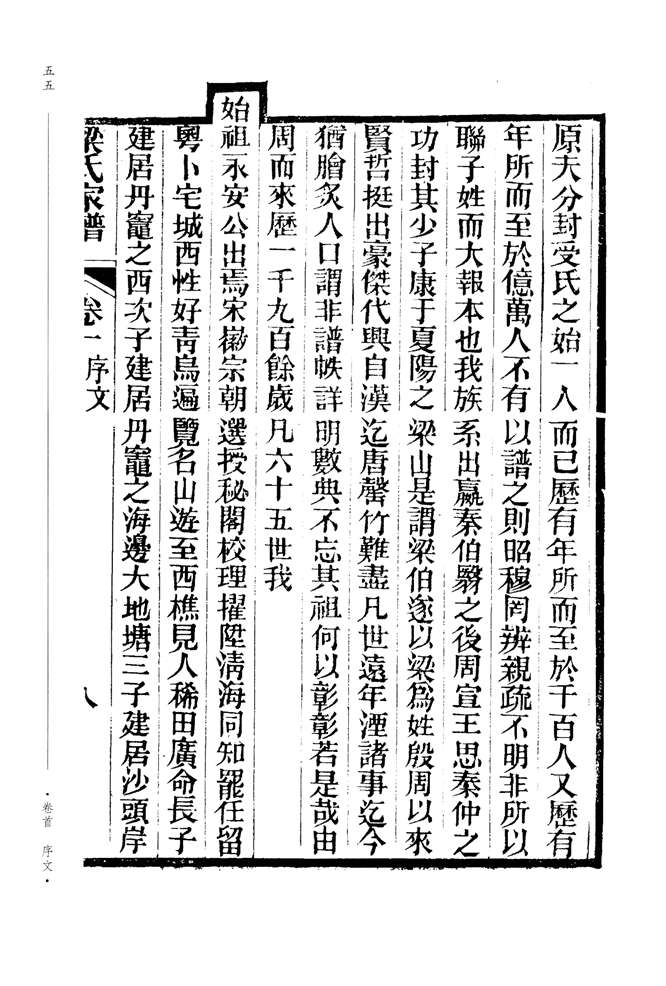 原夫分封受氏之始一人而已歷有年所而至於千百人又歷有
年所而至於億萬人不有以譜之則昭穆罔辨親疏不明非所以
聯子姓而大報本也我族系出嬴秦伯翳之後周宣王思秦仲之
功封其少子康于夏陽之梁山是謂梁伯遂以梁爲姓殷周以來
賢哲挺出豪傑代興自漢迄唐罄竹難盡凡世遠年湮諸事迄今
猶膾炙人口謂非譜帙詳明數典不忘其祖何以彰彰若是哉由
周而來歷一千九百餘歲凡六十五世我
始祖永安公出焉宋徽宗朝選授秘閣校理擢陞淸海同知罷任留
粵卜宅城西性好靑烏遍覽名山遊至西樵見人稀田廣命長子
建居丹竈之西次子建居丹竈之海邊大地塘三子建居沙頭岸
梁氏家譜 卷一序文 八
五五
·卷首 序文·